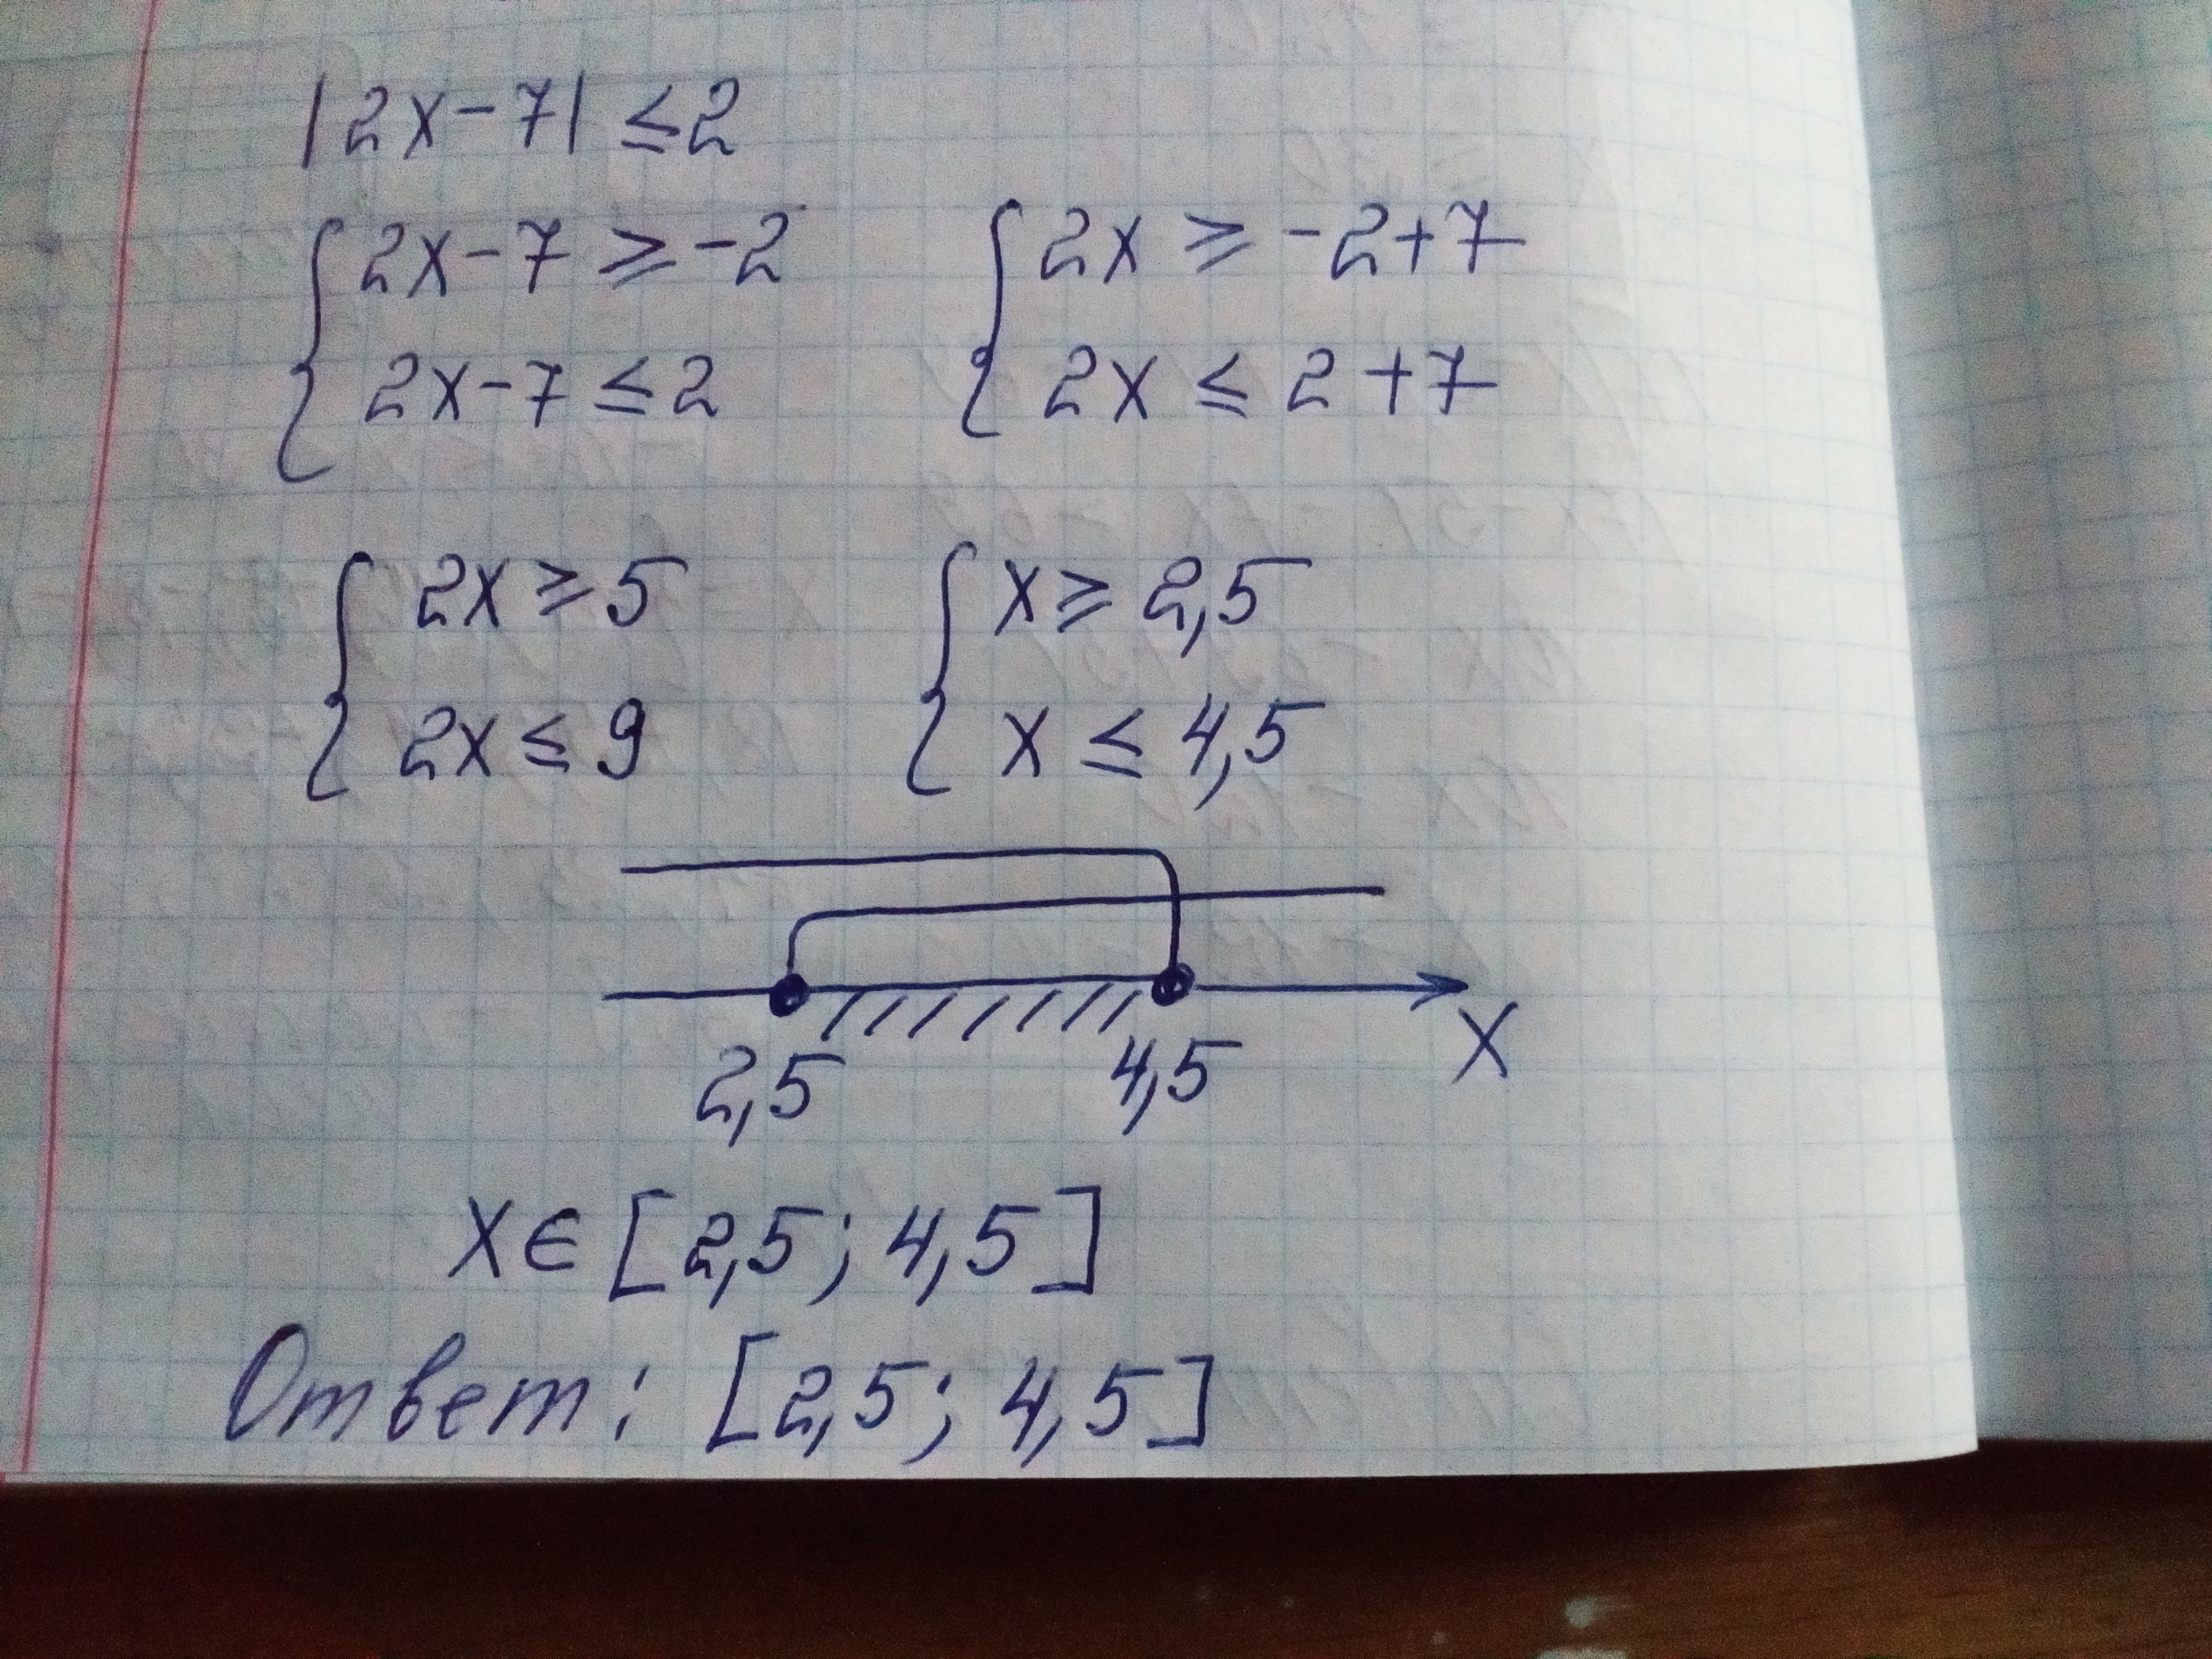 |2x-7| ≤2
{2x-7 ≥ -2 {2x ≥ -2+7
2x-7 ≤2 2x ≤ 2+7
{2x ≥ 5 {x ≥ 2,5
2x ≤ 9 x ≤ 4,5
2,5 4,5 x
x∈ [2,5; 4,5]
Ответ: [2,5; 4,5]